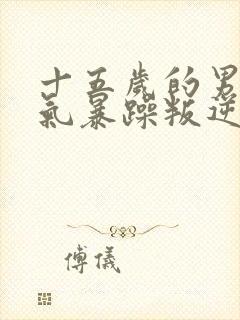 十五歲的男
氣暴躁叛逆
傅儀